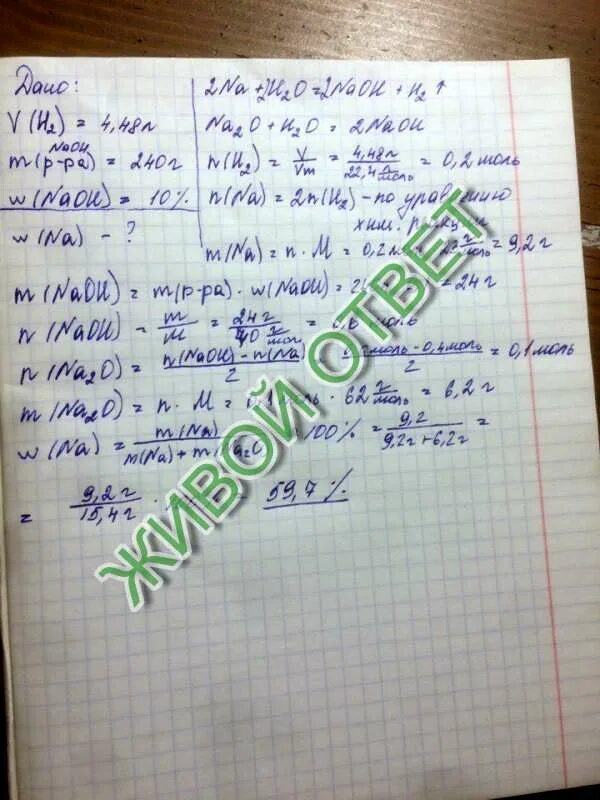 Дано:
V(H₂) = 4,48л
NaOH
m(р-ра) = 240г
w(NaOH) = 10%
w(Na) - ?
2Na + 2H₂O = 2NaOH + H₂↑
Na₂O + H₂O = 2NaOH
n(H₂) = V/Vm = 4,48л/22,4 л/моль = 0,2 моль
n(Na) = 2n(H₂) - по уравнению
хим. реакции
m(Na) = n · M = 0,2 г/моль = 9,2г
m(NaOH) = m(р-ра) · w(NaOH) = = 24г
n(NaOH) = m/M = 24г/40 г/моль = 0,6 моль
n(Na₂O) = n(NaOH) - n(Na)/2 = моль - 0,4моль/2 = 0,1 моль
m(Na₂O) = n · M = 0,1 моль · 62 г/моль = 6,2г
w(Na) = m(Na)/m(Na) + m(Na₂O) 100% = 9,2/9,2г + 6,2г =
= 9,2г/15,4г · = 59,7%
ЖИВОЙ ОТВЕТ